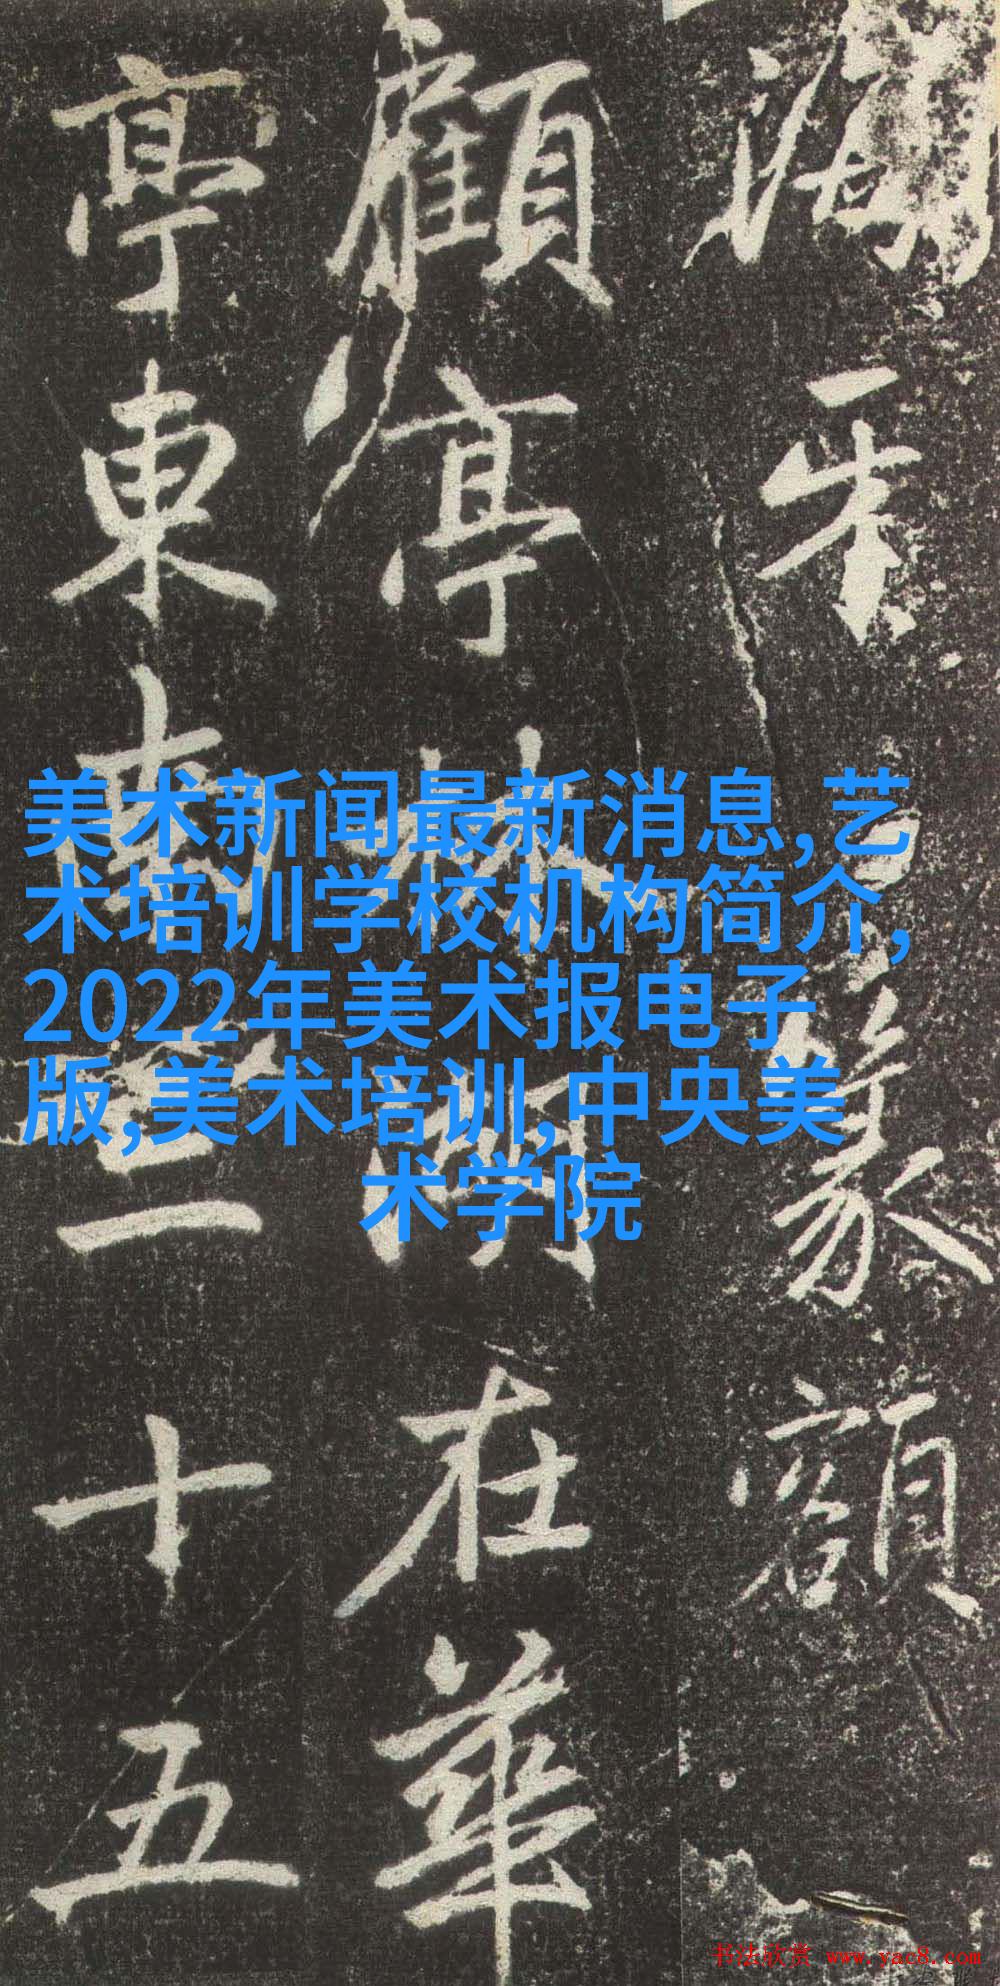 篆額
顧亭林湖在華
亭東南三十五
美术新闻最新消息,艺
术培训学校机构简介,
2022年美术报电子
版,美术培训,中央美
术学院
书法欣赏 www.yac8.com